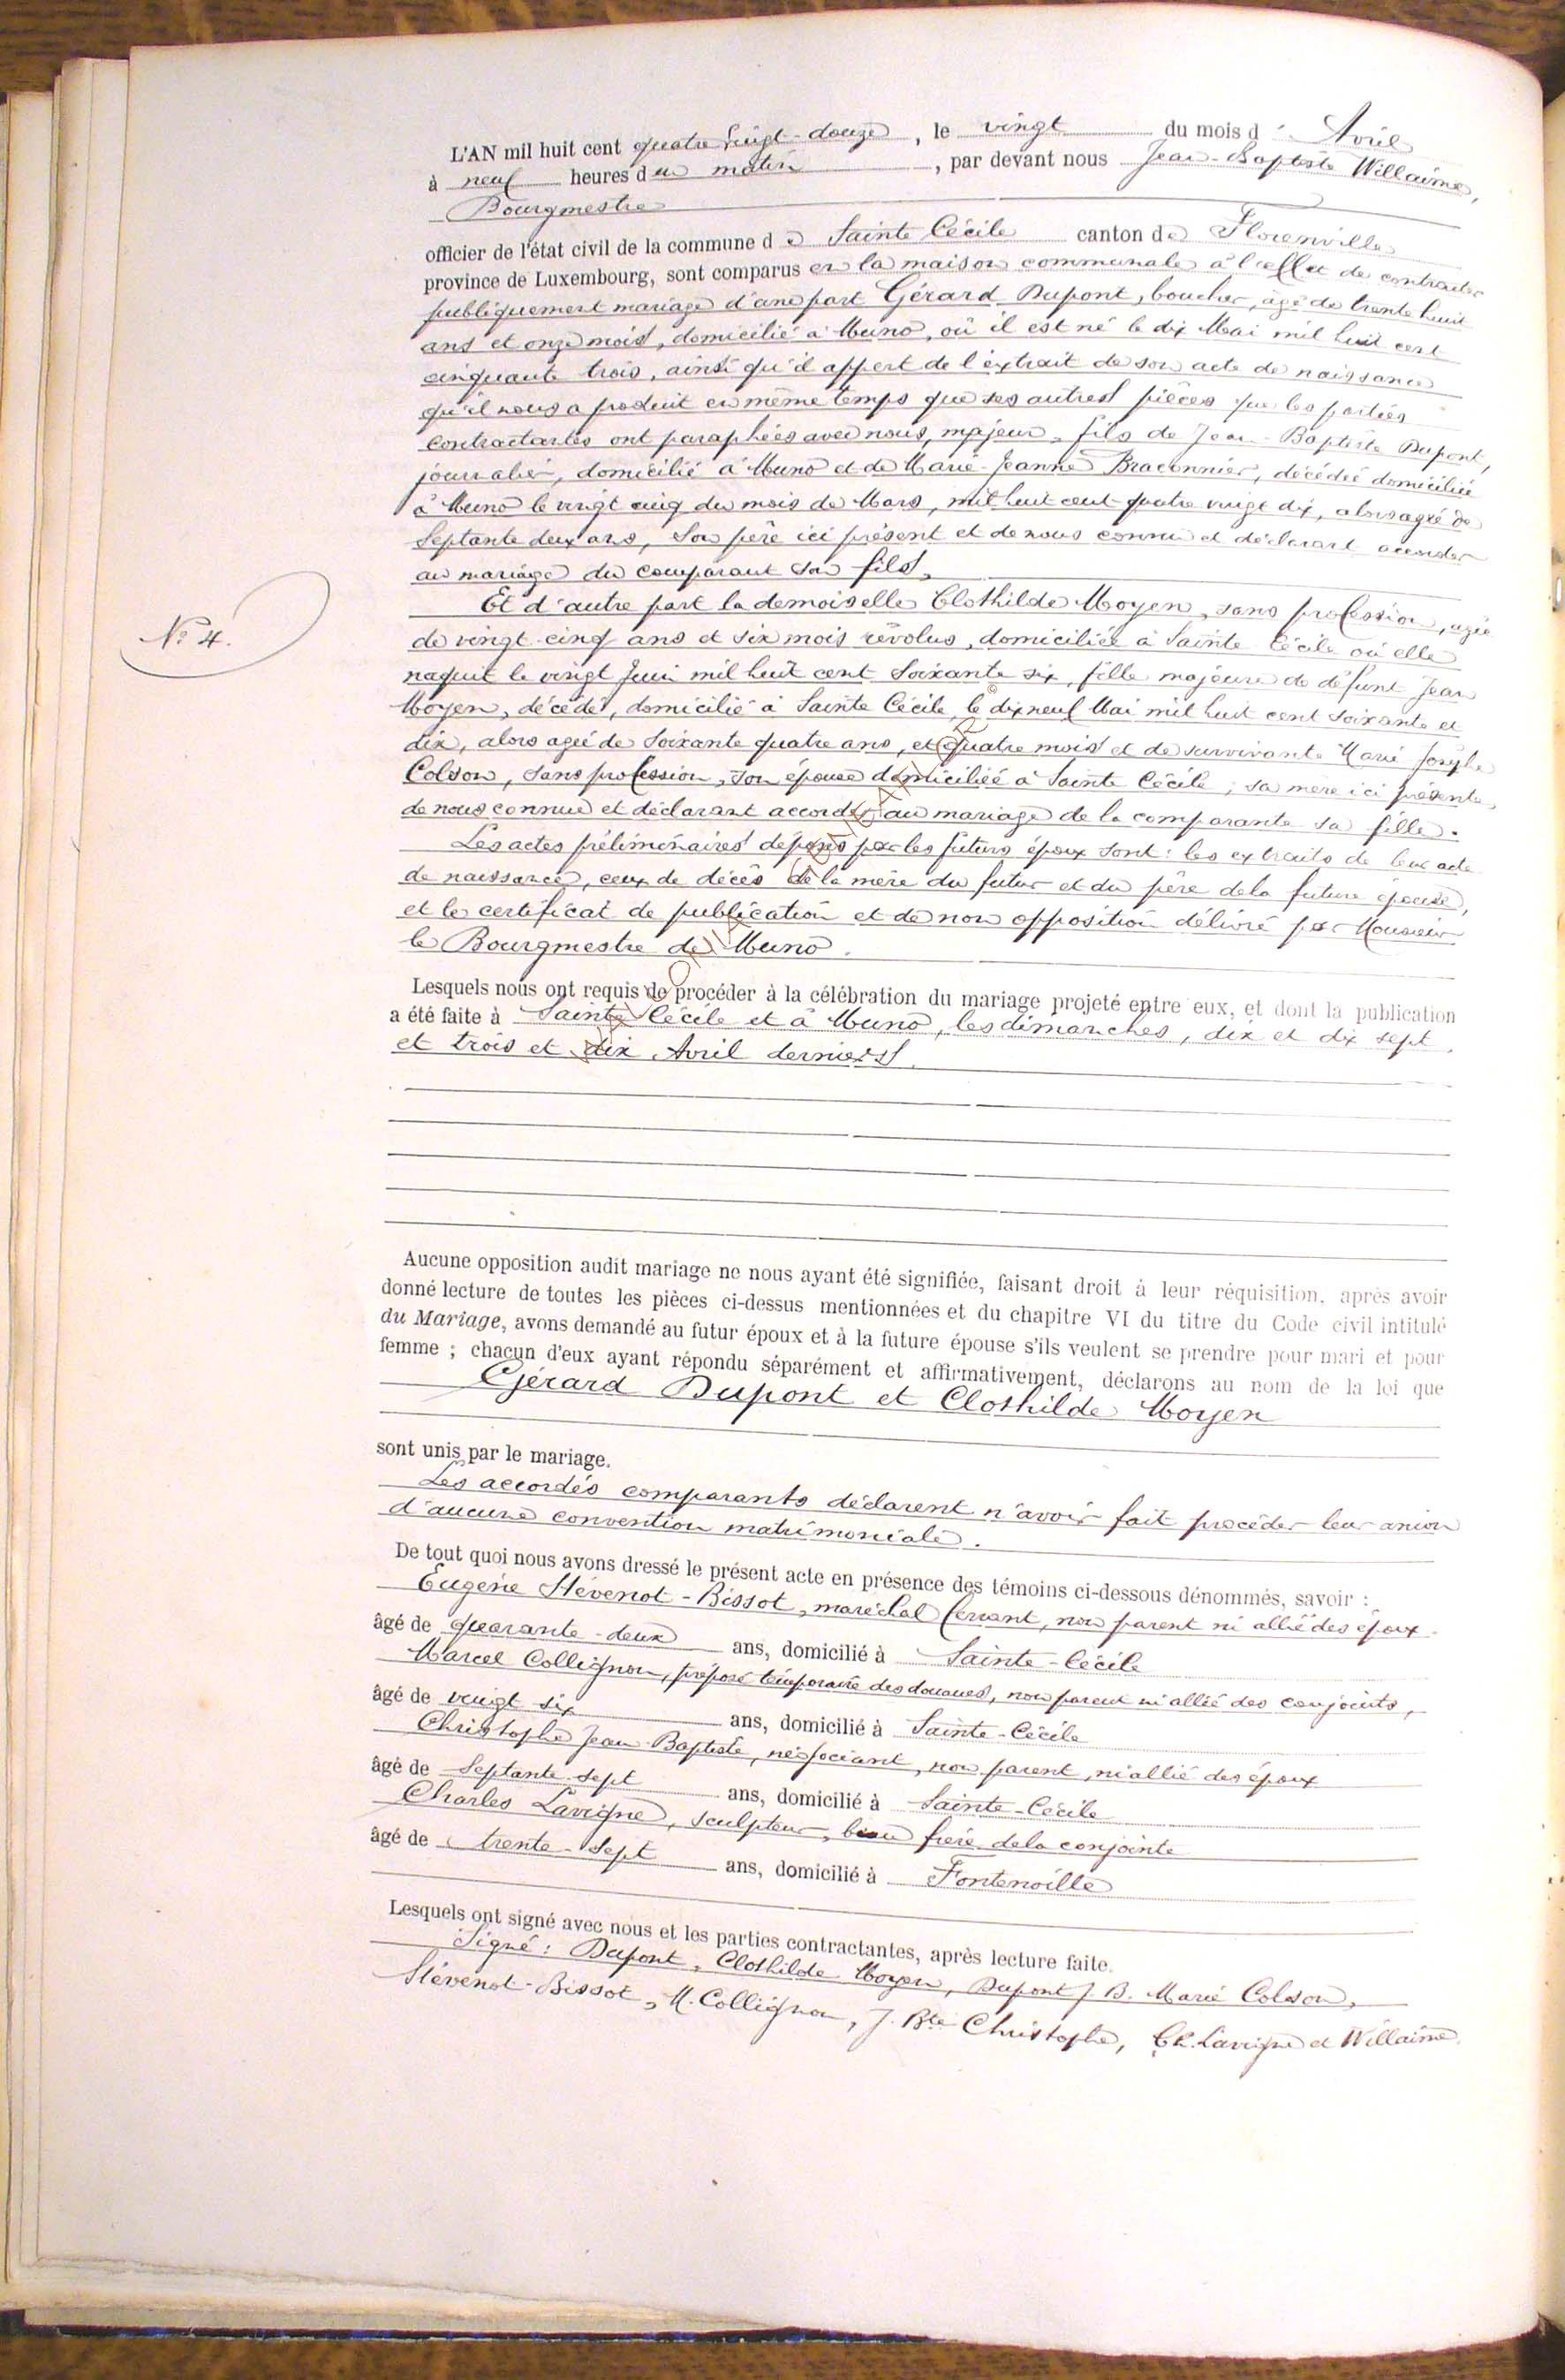 L'AN mil huit cent quatre vingt-douze, le vingt du mois d'Avril
à neuf heures du matin, par devant nous Jean-Baptiste Willaime,
Bourgmestre
officier de l'état civil de la commune de Sainte Cécile canton de Florenville
province de Luxembourg, sont comparus en la maison communale à l'effet de contracter
publiquement mariage d'une part Gérard Dupont, boucher, âgé de trente huit
ans et onze mois, domicilié à Muno, où il est né le dix Mai mil huit cent
cinquante trois, ainsi qu'il appert de l'extrait de son acte de naissance
qu'il nous a produit en même temps que ses autres pièces que les parties
contractantes ont paraphées avec nous, majeur, fils de Jean-Baptiste Dupont,
journalier, domicilié à Muno et de Marie-Jeanne Braconnier, décédée domiciliée
à Muno le vingt cinq du mois de Mars, mil huit cent quatre vingt dix, alors agée de
Septante deux ans, Son père ici présent et de nous connu et déclarant accorder
au mariage du comparant son fils,
N° 4.
Et d'autre part la demoiselle Clothilde Moyen, sans profession, agée
de vingt-cinq ans et six mois révolus, domiciliée à Sainte Cécile où elle
naquit le vingt Juin mil huit cent Soixante six, fille majeure de défunt Jean
Moyen, décédé, domicilié à Sainte Cécile, le dix neuf Mai mil huit cent soixante et
dix, alors agé de Soixante quatre ans, et quatre mois et de survivante Marie Josèphe
Colson, sans profession, son épouse domiciliée à Sainte Cécile; sa mère ici présente,
de nous connue et déclarant accorder au mariage de la comparante sa fille.
Les actes préliminaires déposés par les futurs époux sont: les extraits de leur acte
de naissance, ceux de décès de la mère du futur et du père de la future épouse,
et le certificat de publication et de non opposition délivré par Monsieur
le Bourgmestre de Muno.
Lesquels nous ont requis de procéder à la célébration du mariage projeté entre eux, et dont la publication
a été faite à Sainte Cécile et à Muno, les dimanches, dix et dix sept,
et trois et dix Avril derniers.
Aucune opposition audit mariage ne nous ayant été signifiée, faisant droit à leur réquisition, après avoir
donné lecture de toutes les pièces ci-dessus mentionnées et du chapitre VI du titre du Code civil intitulé
du Mariage, avons demandé au futur époux et à la future épouse s'ils veulent se prendre pour mari et pour
femme ; chacun d'eux ayant répondu séparément et affirmativement, déclarons au nom de la loi que
Gérard Dupont et Clothilde Moyen
sont unis par le mariage.
Les accordés comparants déclarent n'avoir fait précéder leur union
d'aucune convention matrimoniale.
De tout quoi nous avons dressé le présent acte en présence des témoins ci-dessous dénommés, savoir :
Eugène Stévenot-Bissot, maréchal ferrant, non parent ni allié des époux
âgé de quarante-deux ans, domicilié à Sainte-Cécile
Marcel Collignon, préposé temporaire des douanes, non parent ni allié des conjoints,
âgé de vingt six ans, domicilié à Sainte-Cécile
Christophe Jean-Baptiste, négociant, non parent, ni allié des époux
âgé de Septante-sept ans, domicilié à Sainte-Cécile
Charles Lavigne, sculpteur, beau frère de la conjointe
âgé de trente-sept ans, domicilié à Fontenoille
Lesquels ont signé avec nous et les parties contractantes, après lecture faite.
Signé: Dupont, Clothilde Moyen, Dupont J. B. Marie Colson,
Stévenot-Bissot, M. Collignon, J. Bte Christophe, Ch. Lavigne et Willaime.